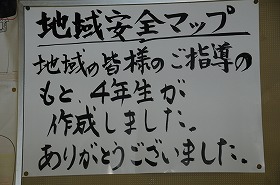 地域安全マップ
地域の皆様のご指導の
もと、4年生が
作成しました。
ありがとうございました。